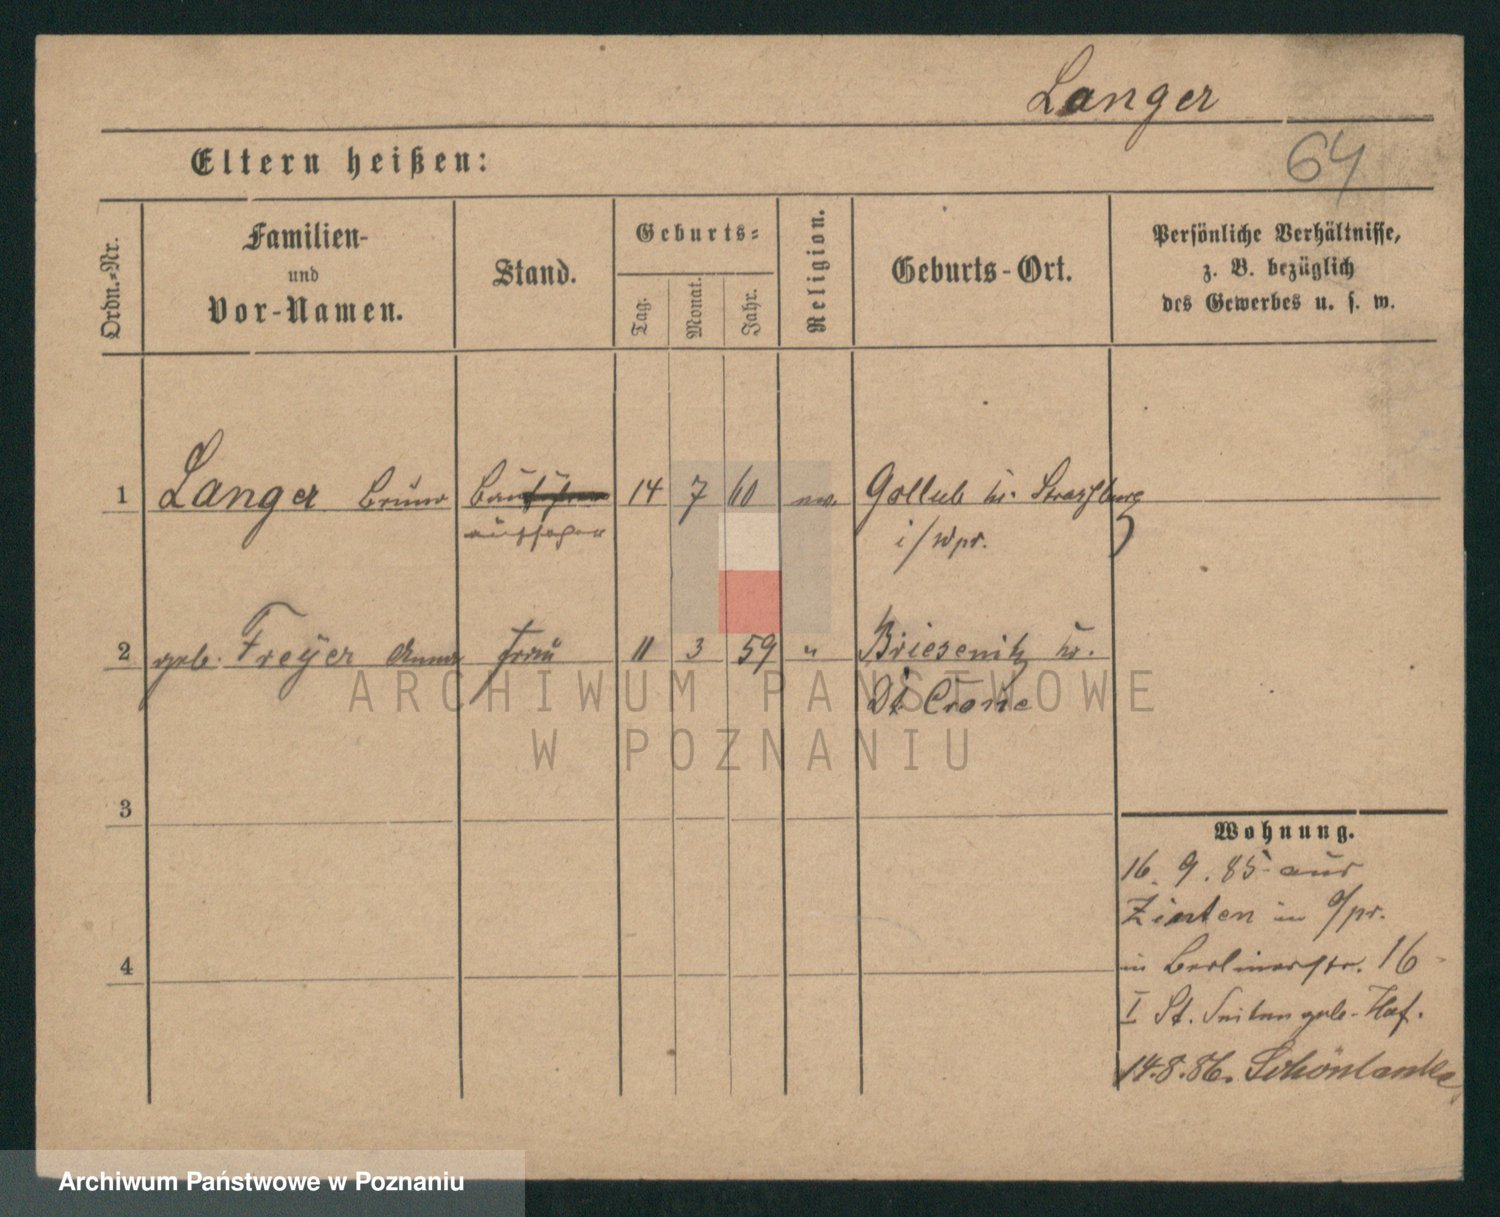 Langer
64
Eltern heißen:
Ordn.-Nr.
Familien-
und
Vor-Namen.
Stand.
Geburts-
Tag.
Monat.
Jahr.
Religion.
Geburts-Ort.
Persönliche Verhältnisse,
z. B. bezüglich
des Gewerbes u. s. w.
1 Langer Bruno Bauführer 14 7 60 ev. Gollub Kr. Strasburg
aufseher i/Wpr.
2 geb. Freyer Anna Frau 11 3 59 " Briesenitz Kr.
Dt Crone
ARCHIWUM PAŃSTWOWE
W POZNANIU
3
4
Wohnung.
16. 9. 85 aus
Zinten in O/pr.
in Berlinerstr. 16
I St. Seitengeb. Hof.
14.8.86. Schönlanke
Archiwum Państwowe w Poznaniu